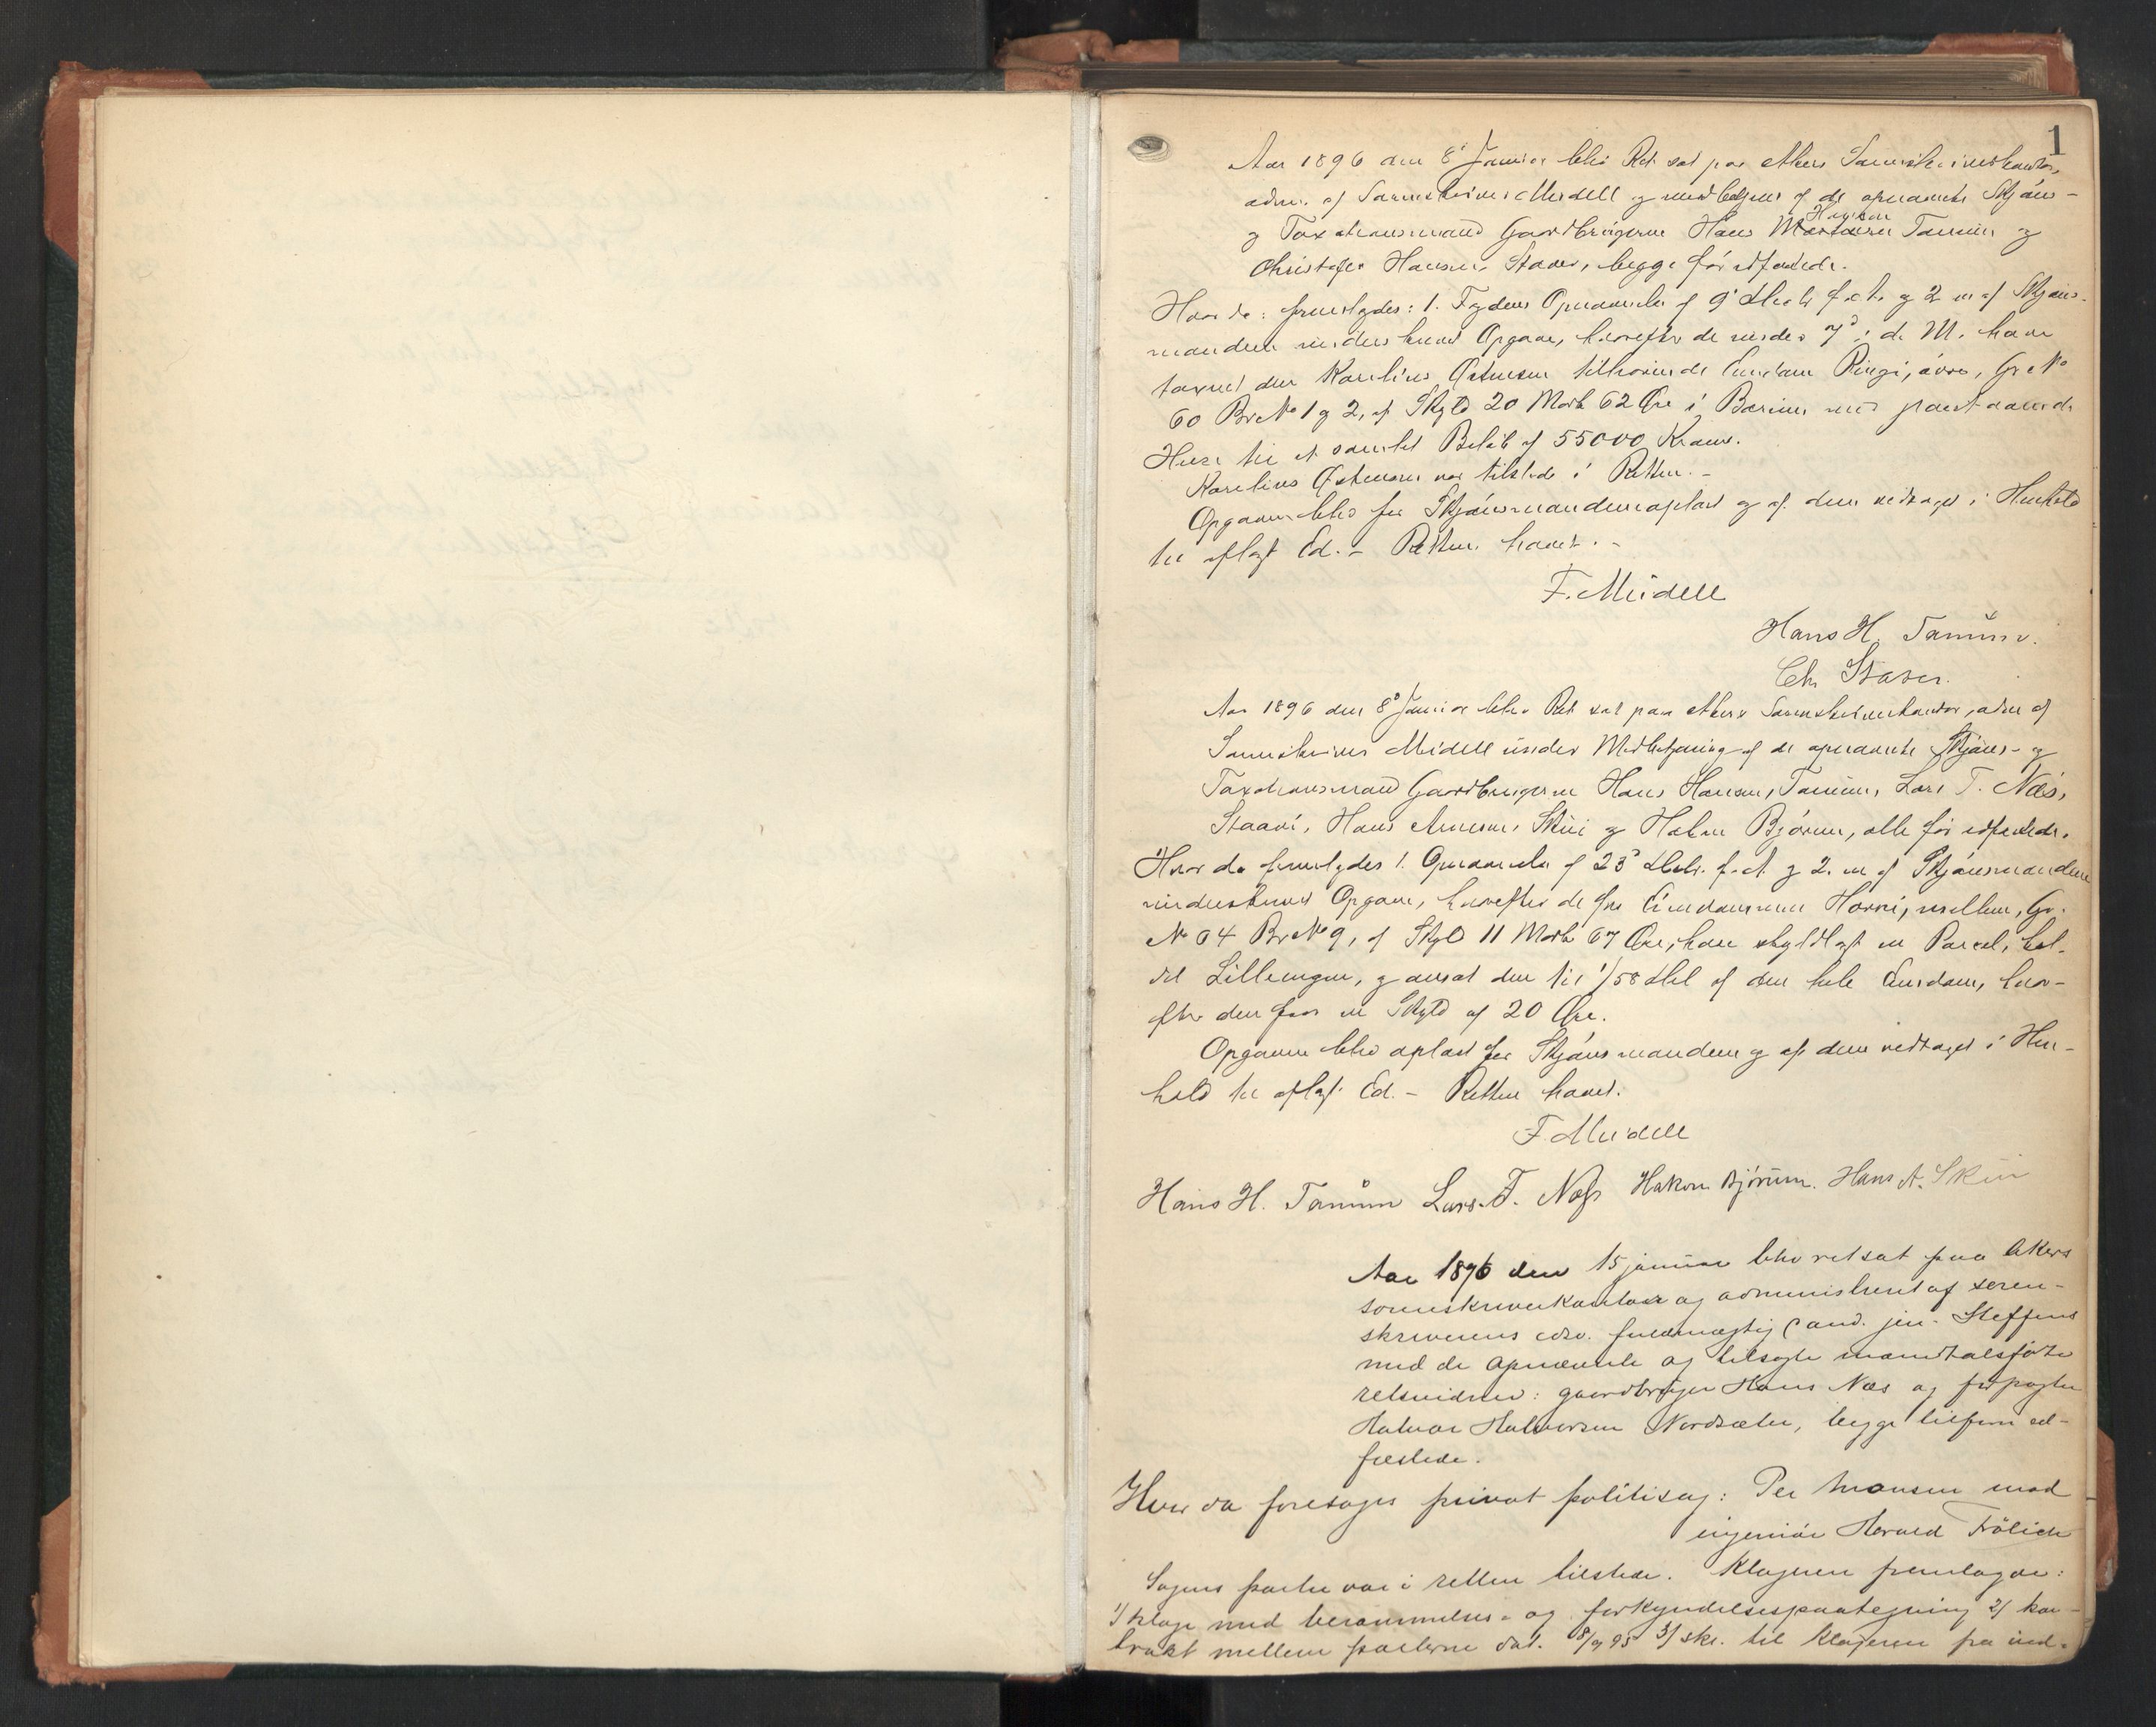 1
Aar 1896 den 8' Januar blev Ret sat paa Akers Sorenskriverkontor,
adm. af Sorenskriver Meidell og med betjent af de opnævnte Skjøns-
og Taxationsmænd Gaardbrugerne Hans Hansen Tanum og
Christofer Hansen Staver, begge før edfæstede.
Hvorda: fremlagdes: 1. Fogdens Opnævnelse af 9' Decbr f. A. og 2 en af Skjøns-
mændene underskreven Opgave, hvorefter de under 7' i d. M. have
taxeret den Karelius Østensen tilhørende Eiendom Ringi, øvre, Gr No
60 Br No 1 og 2, af Skyld 20 Mark 62 Øre i Bærum med paastaaende
Huse til et samlet Beløb af 55000 Kroner.
Karelius Østensen var tilstede i Retten. -
Opgaven blev for Skjønsmændene oplæst og af dem vedtaget i Henhold
til aflagt Ed. - Retten hævet. -
F. Meidell
Hans H. Tanum.
Chr Staver.
Aar 1896 den 8' Januar blev Ret sat paa Akers Sorenskriverkontor, adm af
Sorenskriver Meidell under Medbetjening af de opnævnte Skjøns- og
Taxationsmænd Gaardbrugerne Hans Hansen, Tanum, Lars T. Næs,
Staavi, Hans Arnesen, Skui og Halvor Bjørum, alle før edfæstede.
Hvor da fremlagdes 1. Opnævnelse af 23' Decbr. f. A. og 2. en af Skjønsmændene
underskreven Opgave, hvorefter de fra Eiendommen Horni, mellem, Gr.
No 64 Br No 9, af Skyld 11 Mark 67 Øre, have skyldlagt en Parcel, kal-
det Lilleengen, og ansat den til 1/58 Del af den hele Eiendom, hvor-
efter den faar en Skyld af 20 Øre.
Opgaven blev oplæst for Skjønsmændene og af dem vedtaget i Hen-
hold til aflagt Ed. - Retten hævet.
F. Meidell
Hans H. Tanum Lars. T. Næss Hakon Bjørum. Hans A. Skui
Aar 1896 den 15 januar blev ret sat paa Akers
sorenskriverkontor og administreret af soren-
skriverens edsv. fuldmægtig cand. jur. Steffens
med de opnævnte og tilsagte mandtalsførte
retsvidner: gaardbruger Hans Næs og forpagter
Halvor Halvorsen Nordsæter, begge tilforn ed-
fæstede.
Hvor da foretoges privat politisag: Per Monsen mod
ingeniør Harald Frölich
Sagens parter var i retten tilstede. Klageren fremlagde:
1/ klage med berammelses- og forkyndelsespaategning 2/ kon-
trakt mellem parterne dat. 18/9 95 3/ skr. til klageren fra ind-